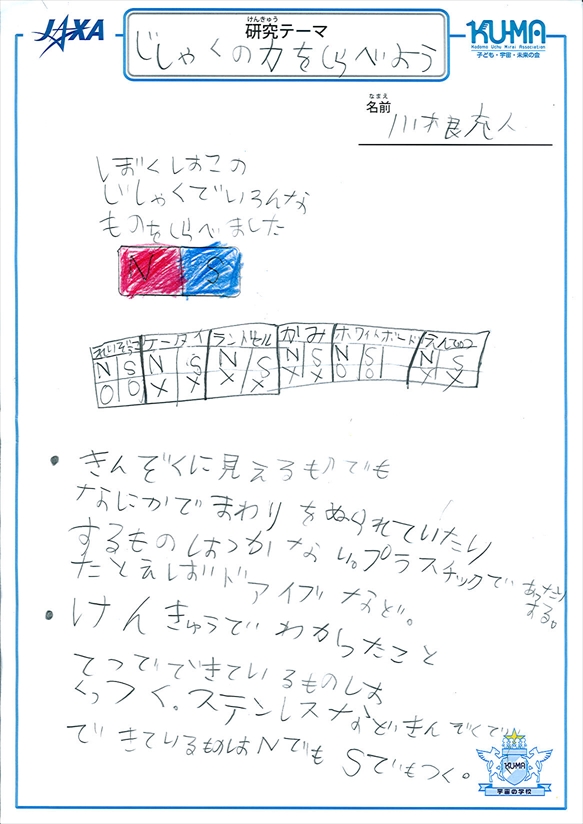 JAXA
けんきゅう
研究テーマ
KUMA
Kodomo Uchu Mirai Association
子ども・宇宙・未来の会
じしゃくの力をしらべよう
なまえ
名前
川木良充人
ぼくはこの
じしゃくでいろんな
ものをしらべました
N S
れいぞうこ ケータイ ランドセル かみ ホワイトボード えんぴつ
N S N S N S N S N S N S
O O X X X X X X O O X X
・きんぞくに見えるものでも
なにかでまわりをぬられていたり
するものはつかない。プラスチックであったり
する。
たとえばドアノブなど。
・けんきゅうでわかったこと
てつでできているものは
くっつく。ステンレスなどきんぞくで
できているものはNでもSでもつく。
KUMA
宇宙の学校